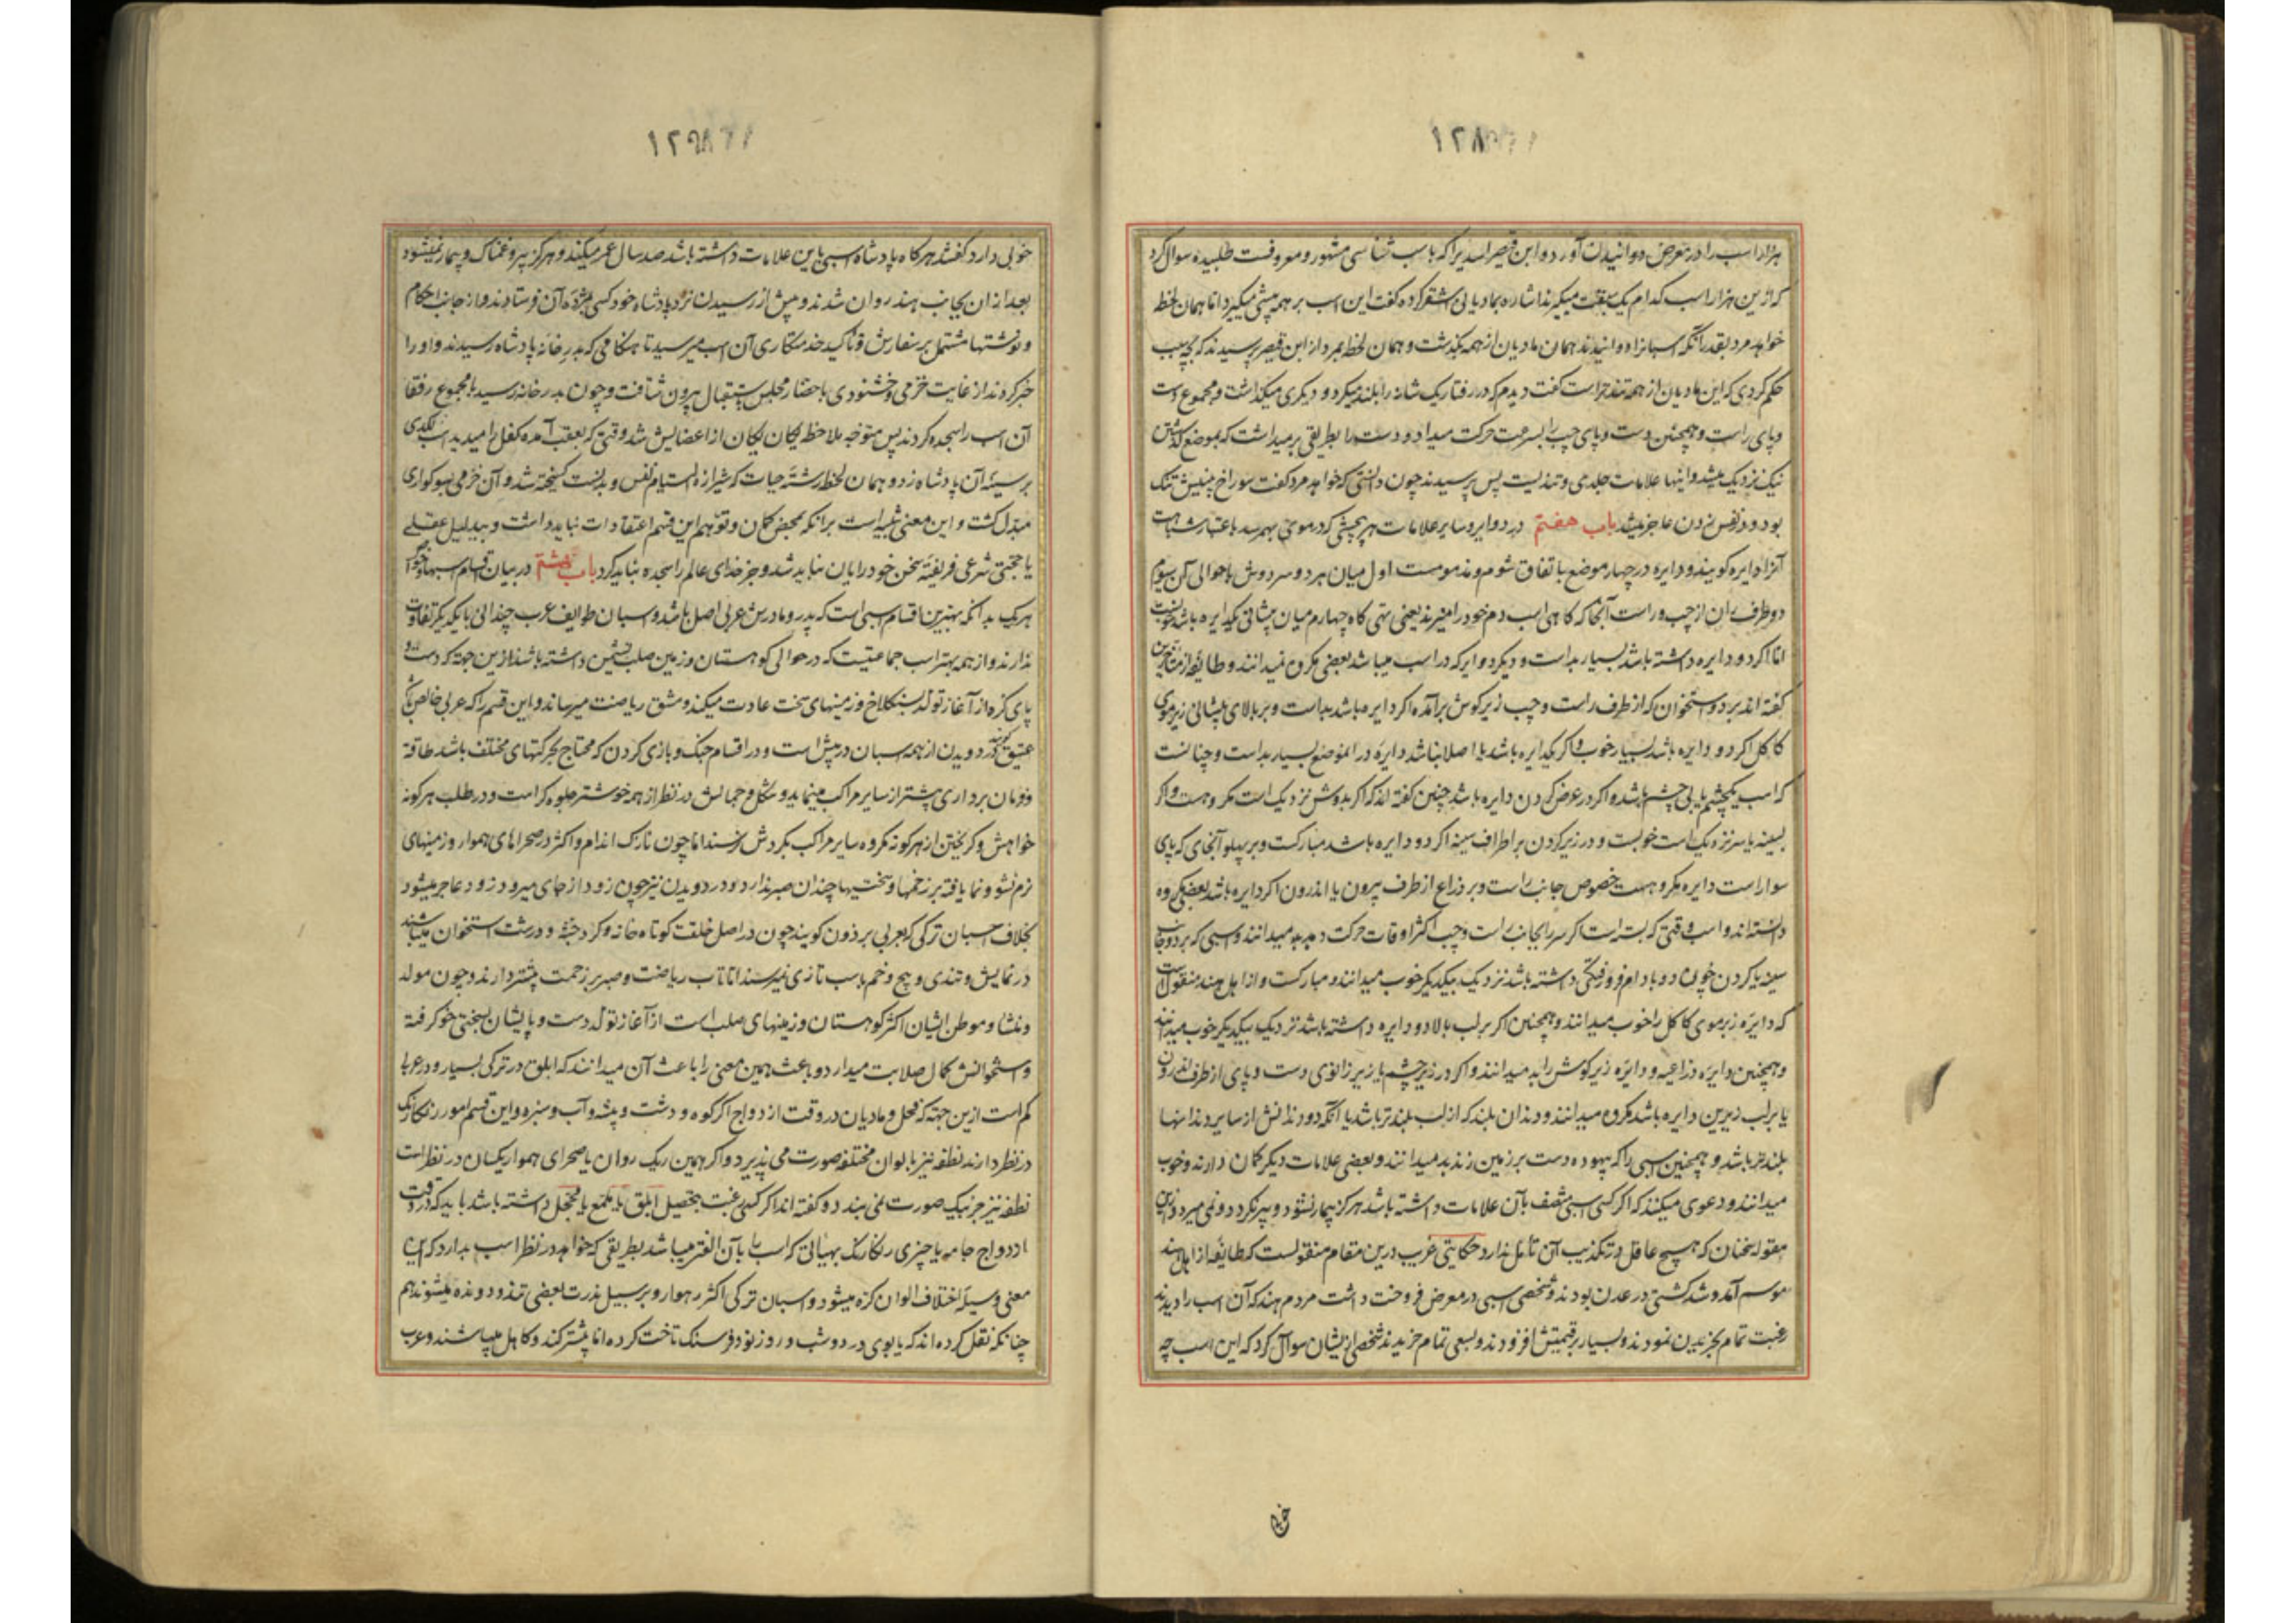 ۱۲۸
هزار اسب را در معرض دوانیدن آورد و ابن قیصر اسدیرا که باسب شناسی مشهور و معروفست طلبیده سوال کرد
که ازین هزار اسب کدام یک سبقت میگیرند اشاره بمادیانی اشقر کرده گفت این اسب بر همه پیشی میگیرد اما همان لحظه
خواهد مرد بقدر آنکه اسبانرا دوانیدند همان مادیان از همه بگذشت و همان لحظه بمرد از ابن قیصر پرسیدند که بچه سبب
حکم کردی که این مادیان از همه تندتر است گفت دیدم که در رفتار یک شانه را بلند میکرد و دیگری میگذاشت و مجموع دست
و پای راست و همچنین دست و پای چپ را بسرعت حرکت میداد و دست را بطریقی بر میداشت که بموضع
نیک نزدیک میشد و اینها علامات جلدی و تندیست پس پرسیدند چون دانستی که خواهد مرد گفت سوراخ بینیش تنک
بود و در نفس زدن عاجز میشد باب هفتم در دوایر و سایر علامات هر پیچشی که در موی بهمرسد باعتبار شباهت
آنرا دایره گویند و دایره در چهار موضع باتفاق شوم و مذمومست اول میان هر دو سر دوش یا حوالی آن سیوم
دو طرف ران از چپ و راست آنجا که گاهی اسب دم خود را میزند یعنی تهی گاه چهارم میان پیشانی یکدایره باشد
اما اگر دو دایره داشته باشد بسیار بد است و دیگر دوایر که در اسب میباشد بعضی مکروه نمیدانند و طایفه از متاخرین
گفته اند بر دو استخوان که از طرف راست و چپ زیر گوش برآمده اگر دایره باشد بد است و بر بالای پیشانی زیر موی
کاکل اگر دو دایره باشد بسیار خوب و اگر یکدایره باشد یا اصلا نباشد دایره در آنموضع بسیار بد است و چنانست
که اسب یکچشم یا بی چشم باشد و اگر در عرض گردن دایره باشد چنین گفته اند که اگر بدوش نزدیک است مکروهست و اگر
بسینه یا سر نزدیک است خوبست و در زیر گردن بر اطراف سینه اگر دو دایره باشد مبارکست و بر پهلو آنجای که پای
سوار است دایره مکروهست خصوص جانب راست و بر ذراع از طرف بیرون یا اندرون اگر دایره باشد بعضی مکروه
دانسته اند و اسب وقتی که بسته است اگر سر را بجانب راست و چپ اکثر اوقات حرکت دهد بد میدانند و اسبی که بر دو جانب
سینه یا گردن چون دو بادام فرورفتگی داشته باشد نزدیک بیکدیگر خوب میدانند و مبارکست و از اهل هند منقول است
که دایره زیر موی کاکل را خوب میدانند و همچنین اگر بر لب بالا دو دایره داشته باشد نزدیک بیکدیگر خوب میدانند
و همچنین دایره ذراعیه و دایره زیر گوش را بد میدانند و اگر در زیر چشم یا زیر زانوی دست و پای از طرف اندرون
یا بر لب زیرین دایره باشد مکروه میدانند و دندان بلند که از لب بلندتر باشد یا آنکه دو دندانش از سایر دندانها
بلندتر باشد و همچنین اسبی را که بیهوده دست بر زمین زند بد میدانند و بعضی علامات دیگر گمان دارند و خوب
میدانند و دعوی میکنند که اگر کسی اسبی متصف بآن علامات داشته باشد هرگز بیمار نشود و پیر نگردد و نمی میرد و ازین
مقوله سخنان که هیچ عاقل در تکذیب آن تامل ندارد حکایتی غریب درین مقام منقولست که طایفه از اهل هند
موسم آمد و شد کشتی در عدن بودند و شخصی اسبی در معرض فروخت داشت مردم هند که آن اسب را دیدند
رغبت تمام بخریدن نمودند و بسیار بر قیمتش افزودند و بسعی تمام خریدند شخصی از ایشان سوال کرد که این اسب چه
خوبی
۱۲۹
خوبی دارد گفتند هر گاه پادشاه اسبی باین علامات داشته باشد صد سال عمر میکند و هرگز پیر و غمناک و بیمار نمیشود
بعد از ان بجانب هند روان شدند و پیش از رسیدن نزد پادشاه خود کسی بمژده آن فرستادند و از جانب احکام
و نوشتها مشتمل بر سفارش و تاکید خدمتکاری آن اسب میرسید تا هنگامی که بدر خانه پادشاه رسیدند و او را
خبر کردند از غایت خرمی و خشنودی با حضار مجلس باستقبال بیرون شتافت و چون بدر خانه رسید با مجموع رفقا
آن اسب را سجده کردند پس متوجه ملاحظه یکان یکان از اعضایش شد وقتی که بعقب آمده کفل را میدید اسب لگدی
بر سینه آن پادشاه زد و همان لحظه رشته حیات که شیرازه التیام نفس و بدنست گسیخته شد و آن خرمی بسوکواری
مبدل گشت و این معنی تنبیه است بر آنکه بمحض گمان و توهم این قسم اعتقادات نباید داشت و بیدلیل عقلی
یا حجتی شرعی فریفته سخن خودرایان نباید شد و جز خدای عالم را سجده نباید کرد باب هشتم در بیان اقسام اسبها و خواص
هر یک بدانکه بهترین اقسام اسبی است که پدر و مادرش عربی اصل باشد و اسبان طوایف عرب چندانی با یکدیگر تفاوت
ندارند و از همه بهتر اسب جماعتیست که در حوالی کوهستان و زمین صلب نشیمن داشته باشند ازین جهة که دست و
پای کره از آغاز تولد بسنگلاخ و زمینهای سخت عادت میکند و مشق ریاضت میرساند و این قسم را که عربی خالص باشد
عتیق گویند در دویدن از همه اسبان در پیش است و در اقسام جنک و بازی کردن که محتاج بحرکتهای مختلف باشد طاقة
و فرمان برداری بیشتر از سایر مراکب مینماید و شکل و جمالش در نظر از همه خوشتر جلوه گر است و در طلب هر گونه
خواهش و گریختن از هر گونه مکروه سایر مراکب بگردش نرسند اما چون نازک اندام و اکثر در صحراهای هموار و زمینهای
نرم نشو و نما یافته بر زخمها و سختیها چندان صبر ندارد و در دویدن نیز چون زود از جای میرود زود عاجز میشود
بخلاف اسبان ترکی که بعربی برذون گویند چون در اصل خلقت کوتاه خانه و گرد جثه و درشت استخوان میباشند
در نمایش و تندی و پیچ و خم باسب تازی نمیرسند اما تاب ریاضت و صبر بر زحمت بیشتر دارند و چون مولد
و منشاء و موطن ایشان اکثر کوهستان و زمینهای صلب است از آغاز تولد دست و پایشان بسختی خو گرفته
و استخوانش کمال صلابت میدارد و باعث همین معنی را باعث آن میدانند که ابلق در ترکی بسیار و در عربی
کم است ازین جهة که فحل و مادیان در وقت ازدواج اگر کوه و دشت و بیشه و آب و سبزه و این قسم امور رنگارنگ
در نظر دارند نطفه نیز بالوان مختلفه صورت می پذیرد و اگر همین ریک روان یا صحرای هموار یکسان در نظر است
نطفه نیز جز بیک صورت نمی بندد و گفته اند اگر کسی رغبت بتحصیل ابلق یا ملمع یا محجل داشته باشد باید که در وقت
ازدواج جامه یا چیزی رنگارنگ بهیأتی که اسب را بآن الفتر میباشد بطریقی که خواهد در نظر اسب بدارد که این
معنی وسیله اختلاف الوان کره میشود و اسبان ترکی اکثر رهوار و بر سبیل ندرت بعضی تند و دونده میشوند هم
چنانکه نقل کرده اند که یابوی در دو شب و روز نود فرسنک تاخت کرده اما بیشتر کند و کاهل میباشند و عرب